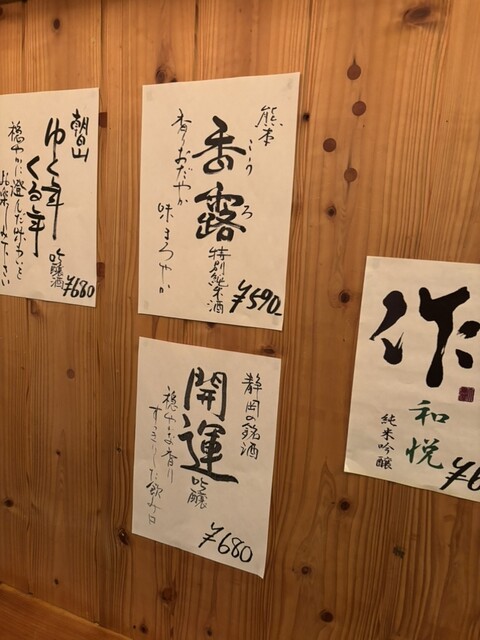 朝日山
ゆく年
くる年
吟醸酒
穏やかに澄んだ味わいを
お楽しみ下さい
¥680
熊本
香露
こうろ
特別純米酒
香りおだやか
味まろやか
¥590
静岡の銘酒
開運
吟醸
穏やかな香り
すっきりした飲み口
¥680
作
和悦
純米吟醸
¥6